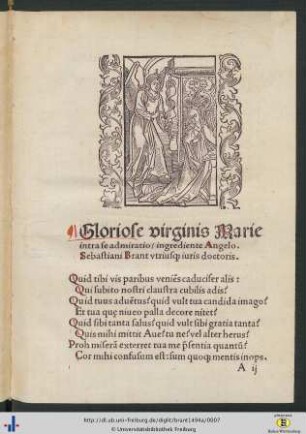 ¶Gloriose virginis Marie
intra se admiratio/ ingrediente Angelo.
Sebastiani Brant vtriusqꝫ iuris doctoris.
Quid tibi vis paribus veniēs caducifer alis:
Qui subito nostri claustra cubilis adis?
Quid tuus aduētus? quid vult tua candida imago?
Et tua quę niueo palla decore nitet?
Quid sibi tanta salus? quid vult sibi gratia tanta?
Quis mihi mittit Aue? ta ne? vel alter herus?
Proh miserā exterret tua me p̄sentia quantū?
Cor mihi confusum est: sum quoqꝫ mentis inops.
A ij
http://dl.ub.uni-freiburg.de/diglit/brant1494a/0007
© Universitätsbibliothek Freiburg